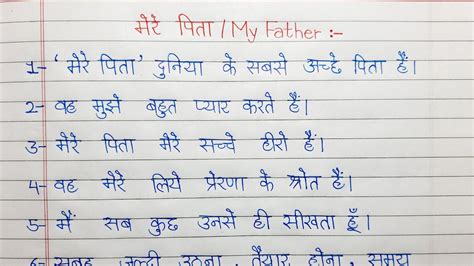 मेरे पिता / My Father :-
1- ' मेरे पिता ' दुनिया के सबसे अच्छे पिता हैं।
2- वह मुझे बहुत प्यार करते हैं।
3- मेरे पिता मेरे सच्चे हीरो हैं।
4- वह मेरे लिये प्रेरणा के श्रोत हैं।
5- मैं सब कुछ उनसे ही सीखता हूँ।
6- सुबह जल्दी उठना, तैयार होना, समय